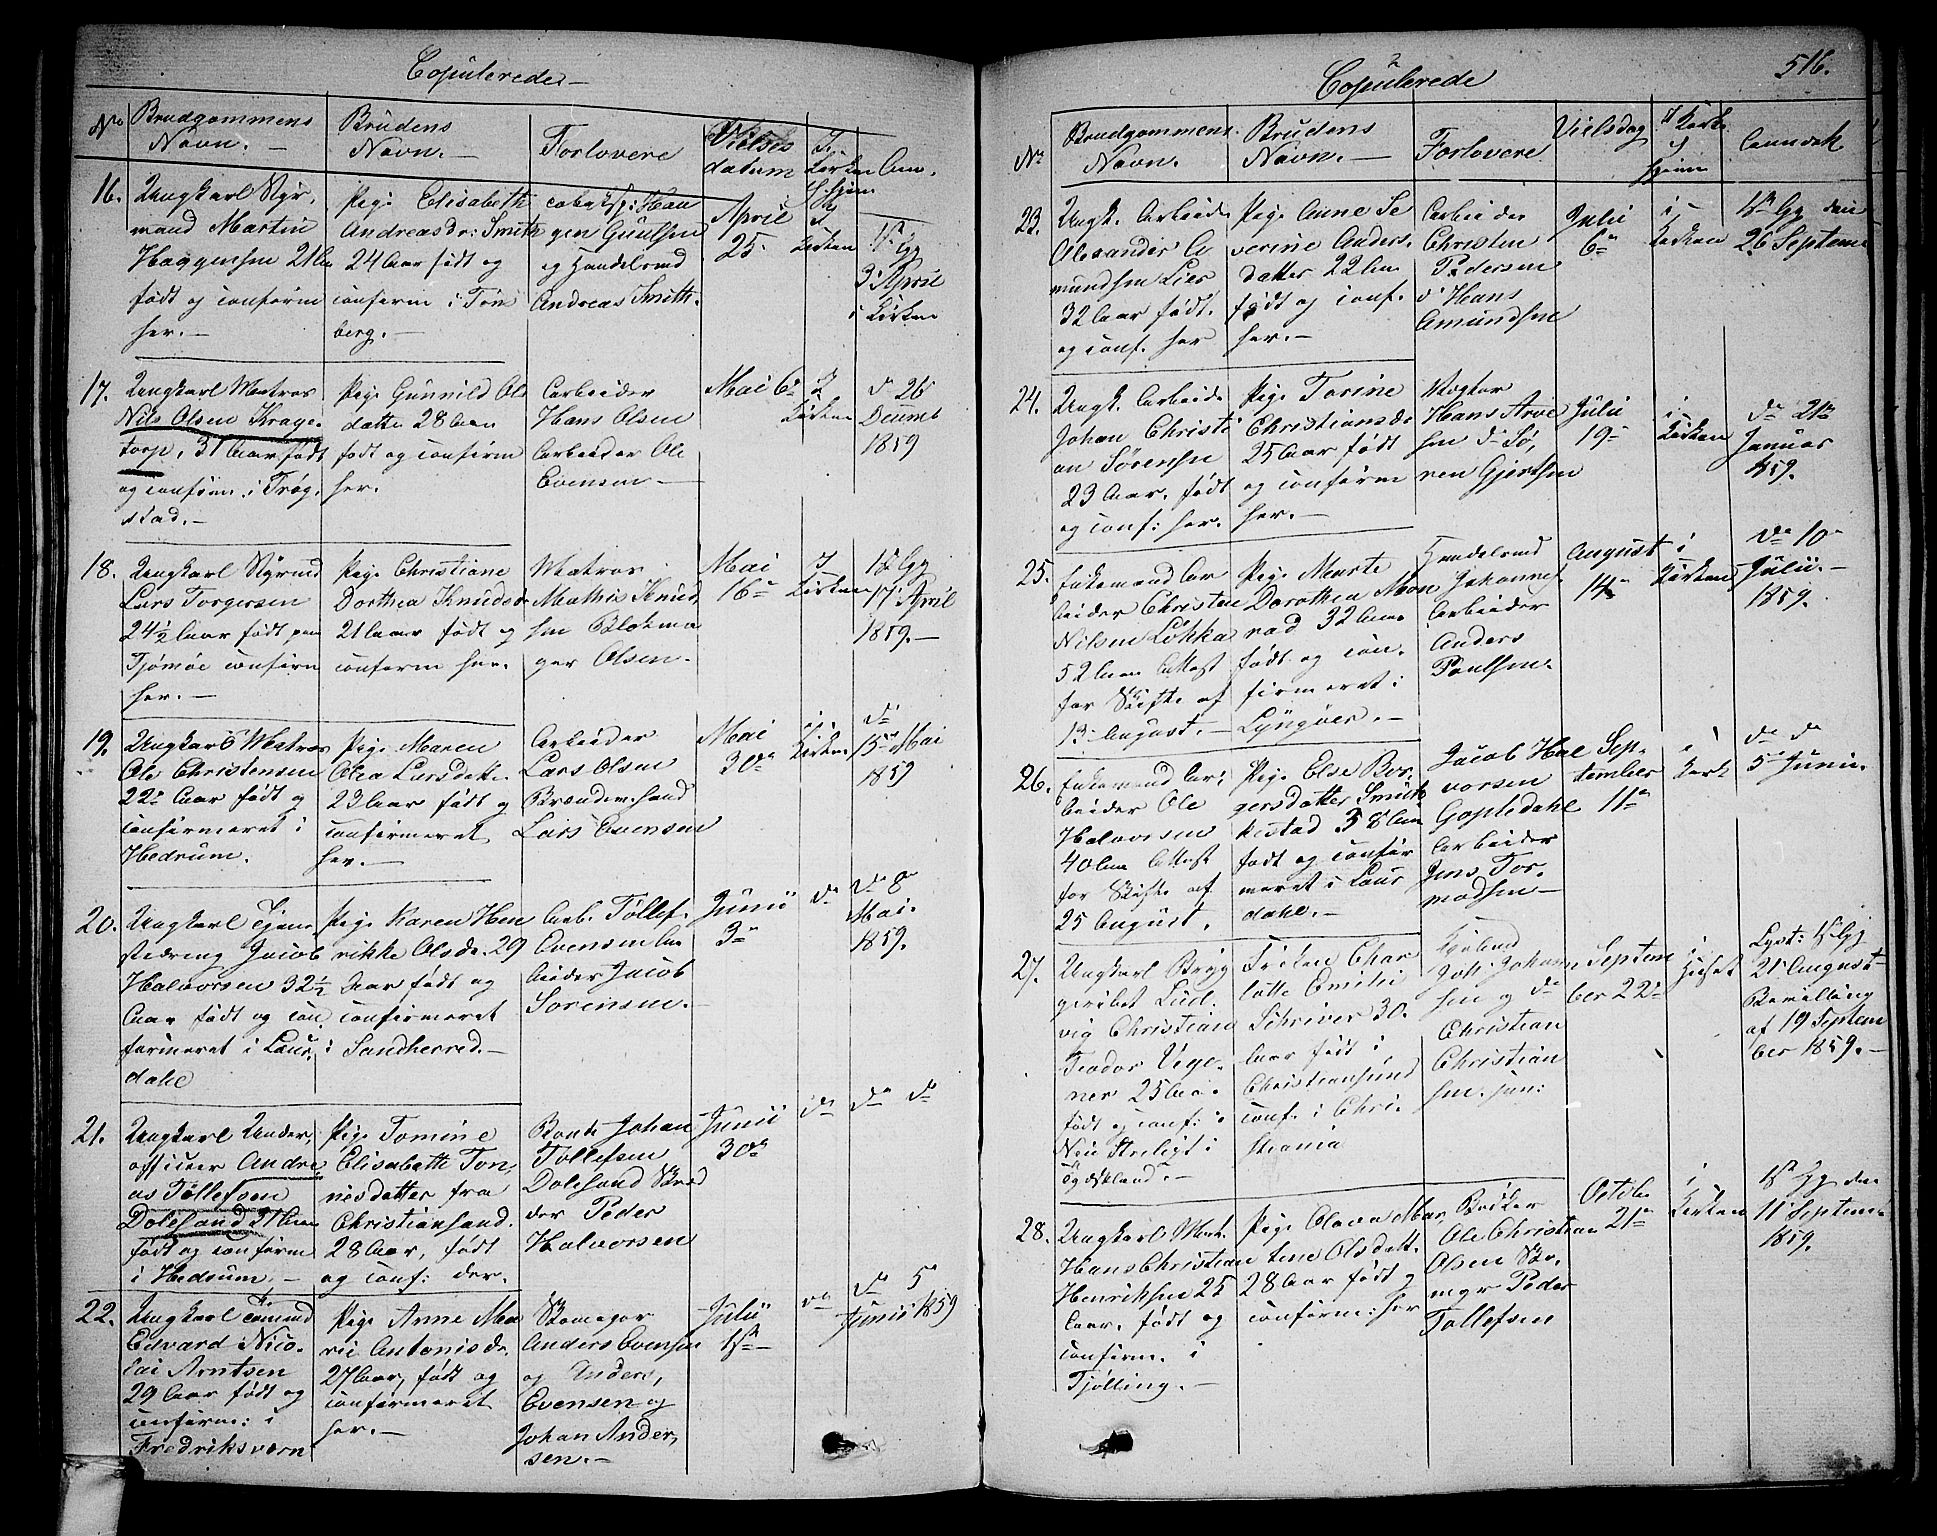 Copulerede
No
Brudgommens
Navn.
Brudens
Navn.
Forlovere
Vielses
datum
I
Kirken
Hjem
Anm.
16.
Ungkarl Styr,
mand Martin
Haggensen 21 Aar
født og confirm
her.
Pige Elisabeth
Andreasdr: Smith
24 Aar født og
confirm i Tøns
berg.
gen Guulsen
og Handelsmd
Andreas Smith.
April
25.
I
Kirken
1ste Gg
3 April
i Kirken
17.
Ungkarl Matros
Nils Olsen Krage-
torp, 31 Aar født
og confirm. i Trøg,
stad.
Pige Gunnild Ols
datter 28 Aar
født og confirm
her.
Arbeider
Hans Olsen
Arbeider Ole
Evensen
Mai 6te
I
Kirken
do 26
Decemb
1859
18.
Ungkarl Styrmd
Lars Torgersen
24 1/2 Aar født paa
Tjømøe confirm
her.
Pige Christiane
Dorthea Knudsdr
21 Aar født og
confirm her.
Matros
Mathis Knud,
sen Blokma
ger Olsen.
Mai
16de
I
Kirken
1ste Gg
17 April
1859.
19.
Ungkarl Matros
Ole Christensen
22 Aar født og
confirmeret i
Hedrum.
Pige Maren
Olea Larsdatter
23 Aar født og
confirmeret
her.
Arbeider
Lars Olsen
Lars Evensen
Mai
30te
i
Kirken
do
15de Mai
1859
20.
Ungkarl Tjene
stedreng Jacob
Halvorsen 32 1/2
Aar født og con
firmeret i Laur,
dahl
Pige Karen Hen
rikke Olsdr. 29
Aar født og
confirmeret
i Sandherred.
Arb. Tollef.
Evensen Ar
beider Jacob
Sørensen.
Junii
3de
do
do 8de
Mai.
1859.
21.
Ungkarl Under,
officeer Andre
as Tollefsen
Dolesand 21 Aar
født og confirm
i Hedrum.
Pige Tomine
Elisabeth Ton,
nesdatter fra
Christiansand.
28 Aar, født
og conf: der.
Johan
Tollefsen
Dolesand Skræd
der Peder
Halvorsen
Junii
30te
do
do do
22.
Ungkarl Tømmd
Edvard Nico.
lai Arntsen
29 Aar født og
confirm: i
Fredriksværn
Pige Anne Ma
rie Antonisdr.
27 Aar, født og
confirmeret
her.
Skomager
Anders Evensen
og Anders,
Evensen og
Johan Ander,
sen.
Julii
1ste
do
do 5te
Junii 1859
Copulerede
516.
No
Brudgommens.
Navn.
Brudens
Navn.
Forlovere
Vielsdag
I Kirk
Hjem
Anmærk
23.
Ungk. Arbeide
Alexander A
mundsen Lier
32 Aar født.
og conf. her
Pige Anne Se
verine Anders.
datter 22 Aar
født og conf.
her.
Arbeider
Christen
Pedersen
Hans
Amundsen
Julii
6te
i
Kirken
1ste Gg den
26 Septem
24.
Ungk. Arbeide
Johan Christi
an Sørensen
23 Aar. født
og conf: her.
Pige Torine
Christiansdr
25 Aar født
og confirm
her.
Vægter
Hans Arve
sen do Sø,
ren Gjertsen
Julii
19de
i
Kirken
do 21de
Januar
1859.
25.
Enkemand Ar
beider Christen
Nilsen Løkka
52 Aar Attest
for Skifte af
13 August.
Pige Marte
Dorothea Mon
rad 32 Aar
født og con,
firmeret i
Lyngøer.
Handelsmd
Johannes
Arbeider
Anders
Paulsen.
August
14de
i
Kirken
do 10de
Julii.
1859.
26.
Enkemand Ar,
beider Ole
Halvorsen
40 Aar Attest
for Skifte af
25 August.
Pige Else Bor,
gersdatter Smut
kestad 38 Aar
født og confir
meret i Laur
dahl.
Jacob Hal
vorsen
Gopledahl
Arbeider
Jens Tor.
modsen
Sep-
tember
11te
i
Kirk
do do
5te Junii.
27.
Ungkarl Bryg
geribst Lud.
vig Christian
Teodor Vege-
ner 25 Aar
født og conf: i
Frøken Char
lotte Emilie
Schriver 30.
Aar født i
Christiansund
conf. i Chri.
stiania
Joh: Johan
sen og do
Christian
Christian
sen. jun:
Septem
ber 22de
i
Huset
Lyst: 1ste Gg
21 August
Bevilling
af 19 Septem
ber 1859.
28.
Ungkarl Mat.
Hans Christian
Henriksen 25
Aar. født og
confirm. i
Tjølling.
Pige Olava Mar,
tene Olsdatt.
28 Aar født og
confirm: her
Bødker
Ole Christian
Olsen Sko.
mgr Peder
Tollefsen
Octobr
21de
i
Kirken
1ste Gg den
11 Septem
1859.